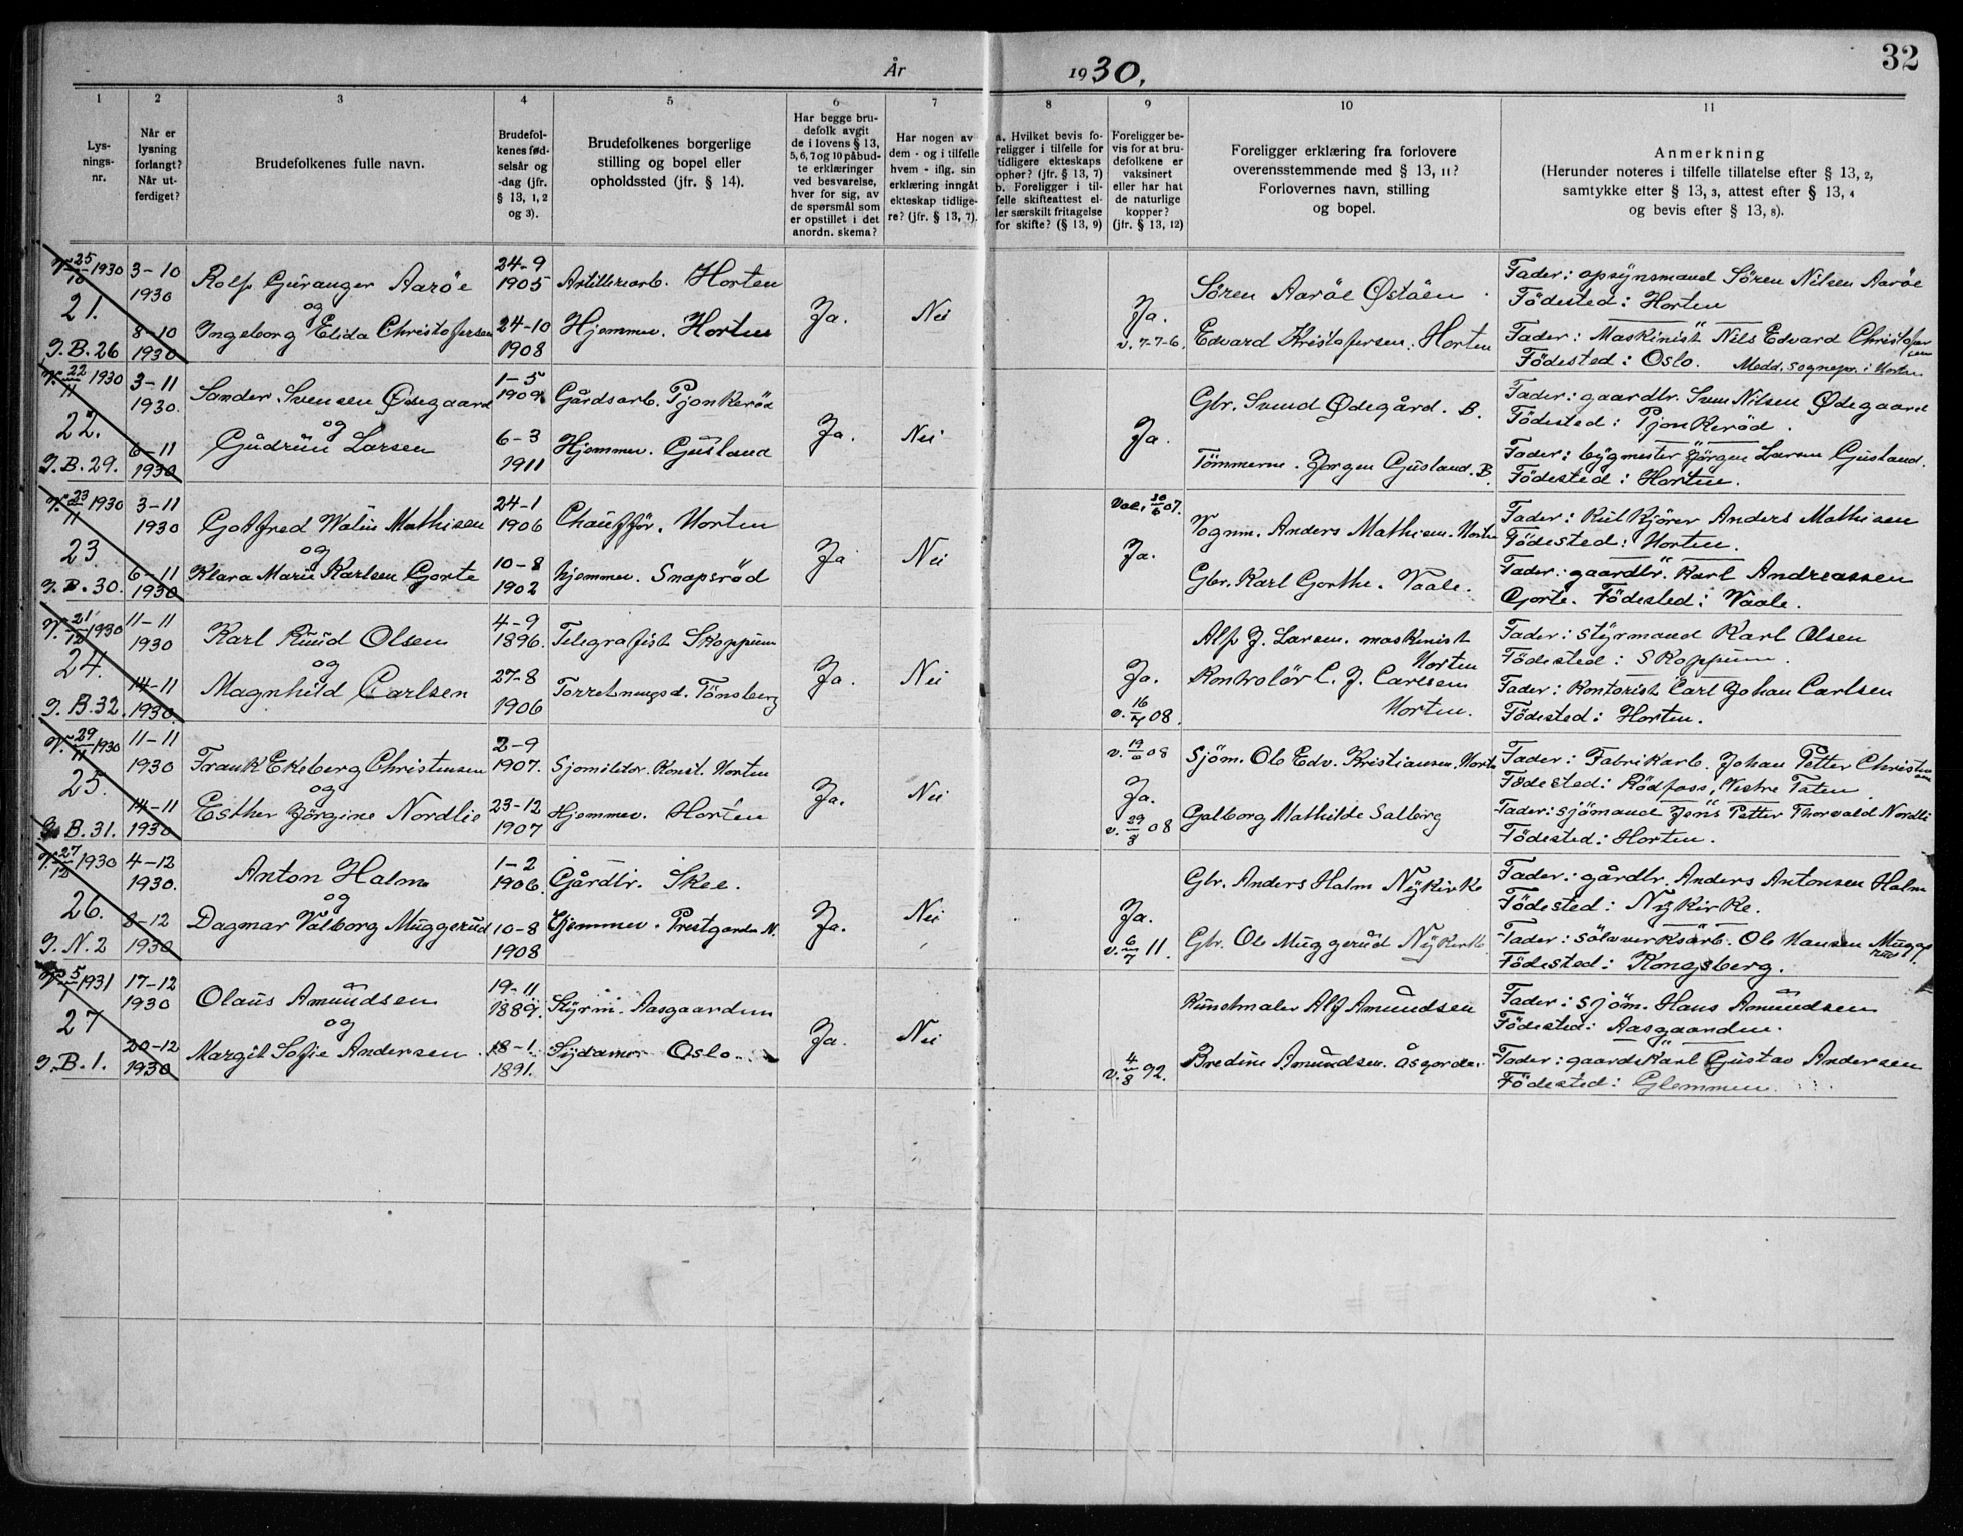 32
År 1930.
1 2 3 4 5 6 7 8 9 10 11
Lys-
nings-
nr.
Når er
lysning
forlangt?
Når ut-
ferdiget?
Brudefolkenes fulle navn.
Brudefol-
kenes fød-
selsår og
-dag (jfr.
§ 13, 1, 2
og 3).
Brudefolkenes borgerlige
stilling og bopel eller
opholdssted (jfr. § 14).
Har begge bru-
defolk avgit
de i lovens § 13,
5, 6, 7 og 10 påbud-
te erklæringer
ved besvarelse,
hver for sig, av
de spørsmål som
er opstillet i det
anordn. skema?
Har nogen av
dem - og i tilfelle
hvem - iflg. sin
erklæring inngått
ekteskap tidlige-
re? (jfr. § 13, 7).
a. Hvilket bevis fo-
religger i tilfelle for
tidligere ekteskaps
ophør? (jfr. § 13, 7)
b. Foreligger i til-
felle skifteattest el-
ler særskilt fritagelse
for skifte? (§ 13, 9)
Foreligger be-
vis for at bru-
defolkene er
vaksinert
eller har hat
de naturlige
kopper?
(jfr. § 13, 12)
Foreligger erklæring fra forlovere
overensstemmende med § 13, 11?
Forlovernes navn, stilling
og bopel.
Anmerkning
(Herunder noteres i tilfelle tillatelse efter § 13, 2,
samtykke efter § 13, 3, attest efter § 13, 4
og bevis efter § 13, 8).
V. 25/10 1930
21.
J.B. 26
3-10
1930
8-10
1930
Rolf Guranger Aarøe
og
Ingeborg Elida Christofersen
24-9
1905
24-10
1908
Artilleriarb. Horten
Hjemmev. Horten
Ja.
Nei
Ja.
v. 7-7-6.
Søren Aarøe Østøen
Edvard Kristofersen. Horten
Fader: opsynsmand Søren Nilsen Aarøe
Födested: Horten
Fader: Maskinist Nils Edvard Christofer
sen
Födested: Oslo. Medd. sognepr. i Horten
V. 22/11 1930
22.
J.B. 29.
3-11
1930.
6-11
1930
Sander Svensen Ødegaard
og
Gudrun Larsen
1-5
1909
6-3
1911
Gårdsarb. Pjonkerød
Hjemmev. Gusland
Ja.
Nei
Ja.
Gbr. Svend Ødegård. B.
Tömmerm. Jørgen Gusland. B.
Fader: gaardbr. Sven Nilsen Ødegaard
Födested: Pjonkerød.
Fader: bygmester Jörgen Larsen Gusland.
Födested: Horten.
V. 23/11 1930
23
J.B. 30.
3-11
1930
6-11
1930
Gotfred Walin Mathisen
og
Klara Marie Karlsen Gorte
24-1
1906
10-8
1902
Chauffør. Horten
hjemmev. Snapsrød
Ja
Nei
Vac. 07.
Ja.
Vognm. Anders Mathisen. Horten
Gbr. Karl Gorthe. Vaale.
Fader: Kulkjører Anders Mathisen
Födested: Horten.
Fader: gaardbr. Karl Andreassen
Gorte. Födested: Vaale.
V. 21/12 1930
24.
J.B. 32.
11-11
1930
14-11
1930.
Karl Ruud Olsen
og
Magnhild Carlsen
4-9
1896.
27-8
1906
Telegrafist Skoppum
Forretningsd. Tönsberg
Ja.
Nei
Ja.
v. 16/7 08.
Alf J. Larsen. maskinist
Horten
Kontrolör C. J. Carlsen
Horten.
Fader: styrmand Karl Olsen
Födested: Skoppum.
Fader: Kontorist Carl Johan Carlsen
Födested: Horten.
V. 29/11 1930
25.
J.B. 31.
11-11
1930
14-11
1930
Frank Ekeberg Christensen
og
Esther Jörgine Nordlie
2-9
1907.
23-12
1907
Sjømilitær. Konst. Horten
Hjemmev. Horten
Ja.
Nei
Ja.
v. 29/8 08
Sjöm. Ole Edv. Kristiansen. Horten
Galborg Mathilde Salberg
Fader: Fabrikarb. Johan Petter Christen
sen
Födested: Rödfoss, Vestre Toten.
Fader: sjömand Jens Petter Thorvald Nordli
Födested: Horten.
V. 27/12 1930
26.
J.N. 2
4-12
1930.
8-12
1930
Anton Holm
og
Dagmar Valborg Muggerud
1-2
1906.
10-8
1908
Gårdbr. Skee.
Hjemmev. Prestgarden N.
Ja.
Nei
Ja.
v. 6/7 11.
Gbr. Anders Holm Nykirke
Gbr. Ole Muggerud Nykirke
Fader: gårdbr. Anders Antonsen Holm
Födested: Nykirke.
Fader: sølvverksarb. Ole Hansen Mugge
rud
Födested: Kongsberg.
V. 5/1 1931
27
J.B. 1.
17-12
1930
20-12
1930
Olaus Amundsen
og
Margit Sofie Andersen
19-11
1889.
18-1
1891.
Styrm. Aasgaarden
Sydame Oslo.
Ja.
Nei
v. 4/8 92.
Kunstmaler Alf Amundsen
Bredine Amundsen. Åsgården
Fader: sjöm. Hans Amundsen
Födested: Aasgaarden.
Fader: gaardskarl Gustav Andersen
Födested: Glemmen.